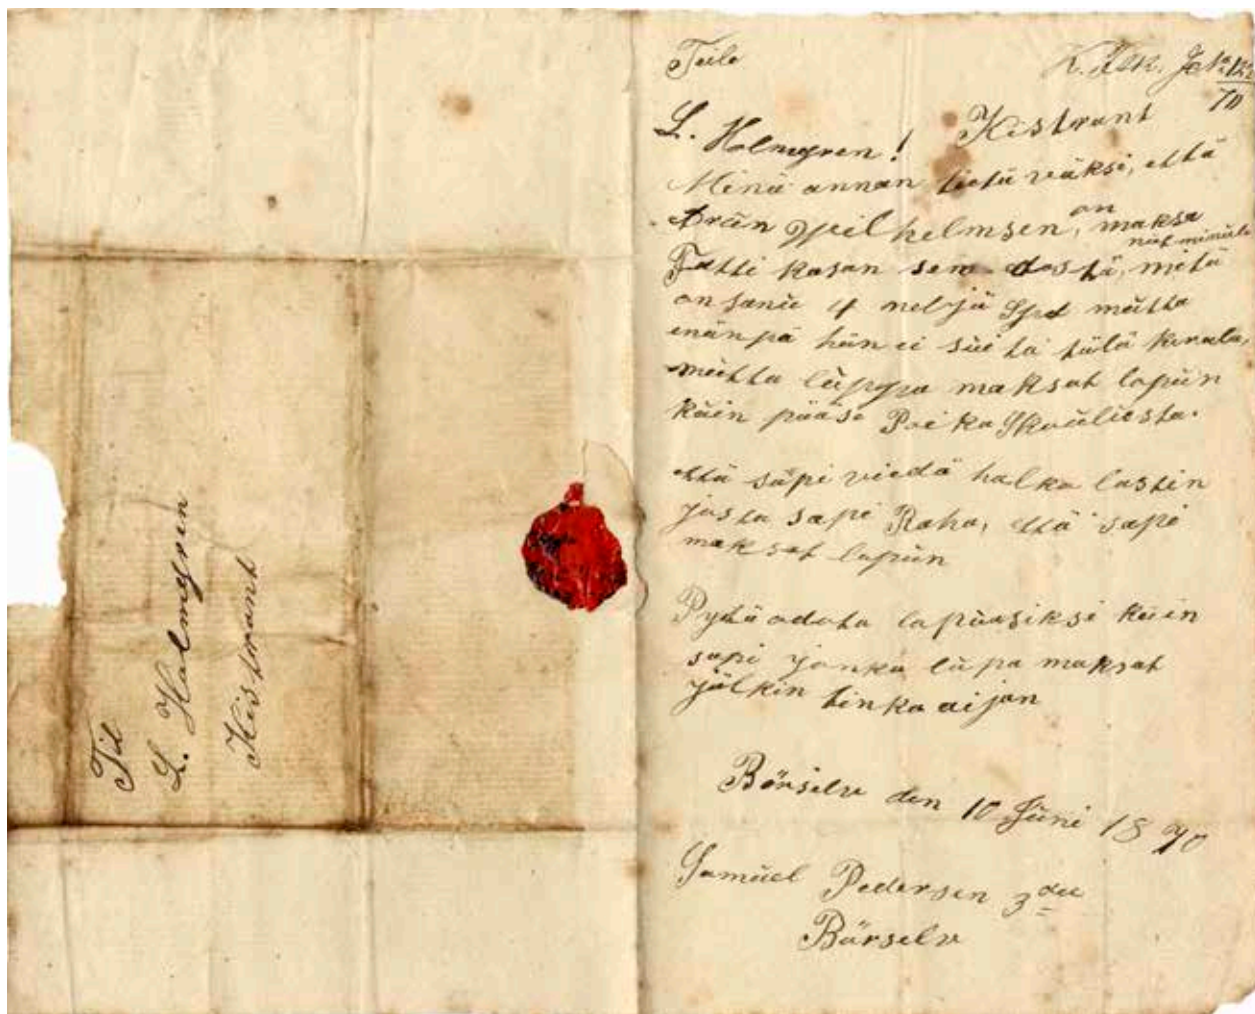 Til
L. Holmgren
Kistrant
Teile
70
L. Holmgren! Kistrant
Minä annan tietä väksi, että
Brän Wilhelmsen, on maksa
nüt minüle
Fatti kasan sem dastä, mitä
on sanü 4 neljä Spd mütta
enänpä hän ei süita tülä kerala,
mütta lüppa maksat lopün
küin pääse Poika Skoüliesta.
että säpi viedä halko lastin
josta sapi Raha, että sapi
maksat lopün
Pydü odata lopüasiksi küin
sapi jonka lüpa maksat
jälkin tinka aijan
Börselv den 10 Jüni 1870
Samüel Pedersen 3die
Börselv